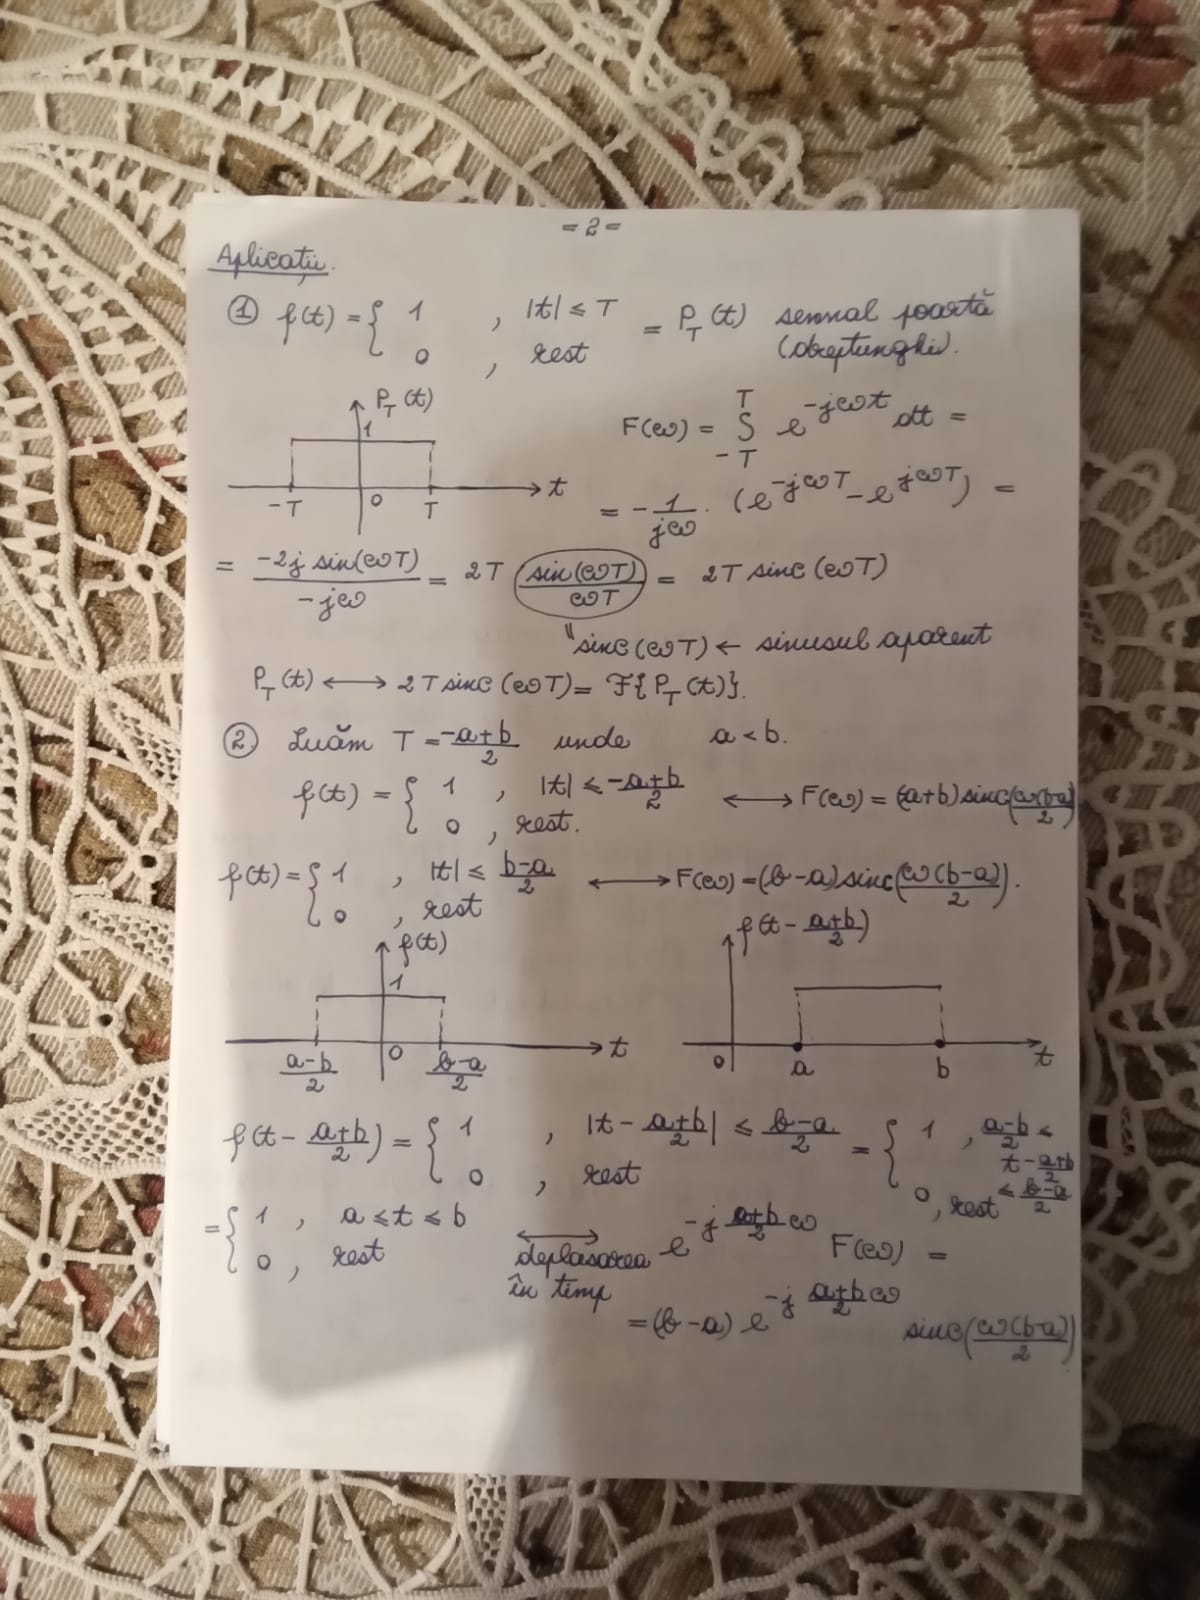 = 2 =
Aplicații.
① f(t) = { 1 , |t| ≤ T
0 , rest
= P_T(t) semnal poartă
(dreptunghi).
P_T(t)
1
-T 0 T t
F(ω) = ∫_{-T}^{T} e^{-jωt} dt =
= -1/(jω) · (e^{-jωT} - e^{jωT}) =
= (-2j sin(ωT))/(-jω) = 2T (sin(ωT))/(ωT) = 2T sinc(ωT)
" sinc(ωT) ← sinusul aparent
P_T(t) ⟷ 2T sinc(ωT) = F{P_T(t)}.
②. Luăm T = (-a+b)/2 unde a < b.
f(t) = { 1 , |t| ≤ (-a+b)/2 ⟷ F(ω) = (-a+b) sinc(ω(b-a)/2)
0 , rest.
f(t) = { 1 , |t| ≤ (b-a)/2 ⟷ F(ω) = (b-a) sinc(ω(b-a)/2).
0 , rest
f(t)
1
(a-b)/2 0 (b-a)/2 t
f(t - (a+b)/2)
0 a b t
f(t - (a+b)/2) = { 1 , |t - (a+b)/2| ≤ (b-a)/2 = { 1 , (a-b)/2 ≤ t - (a+b)/2 ≤ (b-a)/2
0 , rest 0, rest
= { 1 , a ≤ t ≤ b ⟷ e^{-j (a+b)/2 ω} F(ω) =
0 , rest deplasarea
în timp
= (b-a) e^{-j (a+b)/2 ω} sinc(ω(b-a)/2)